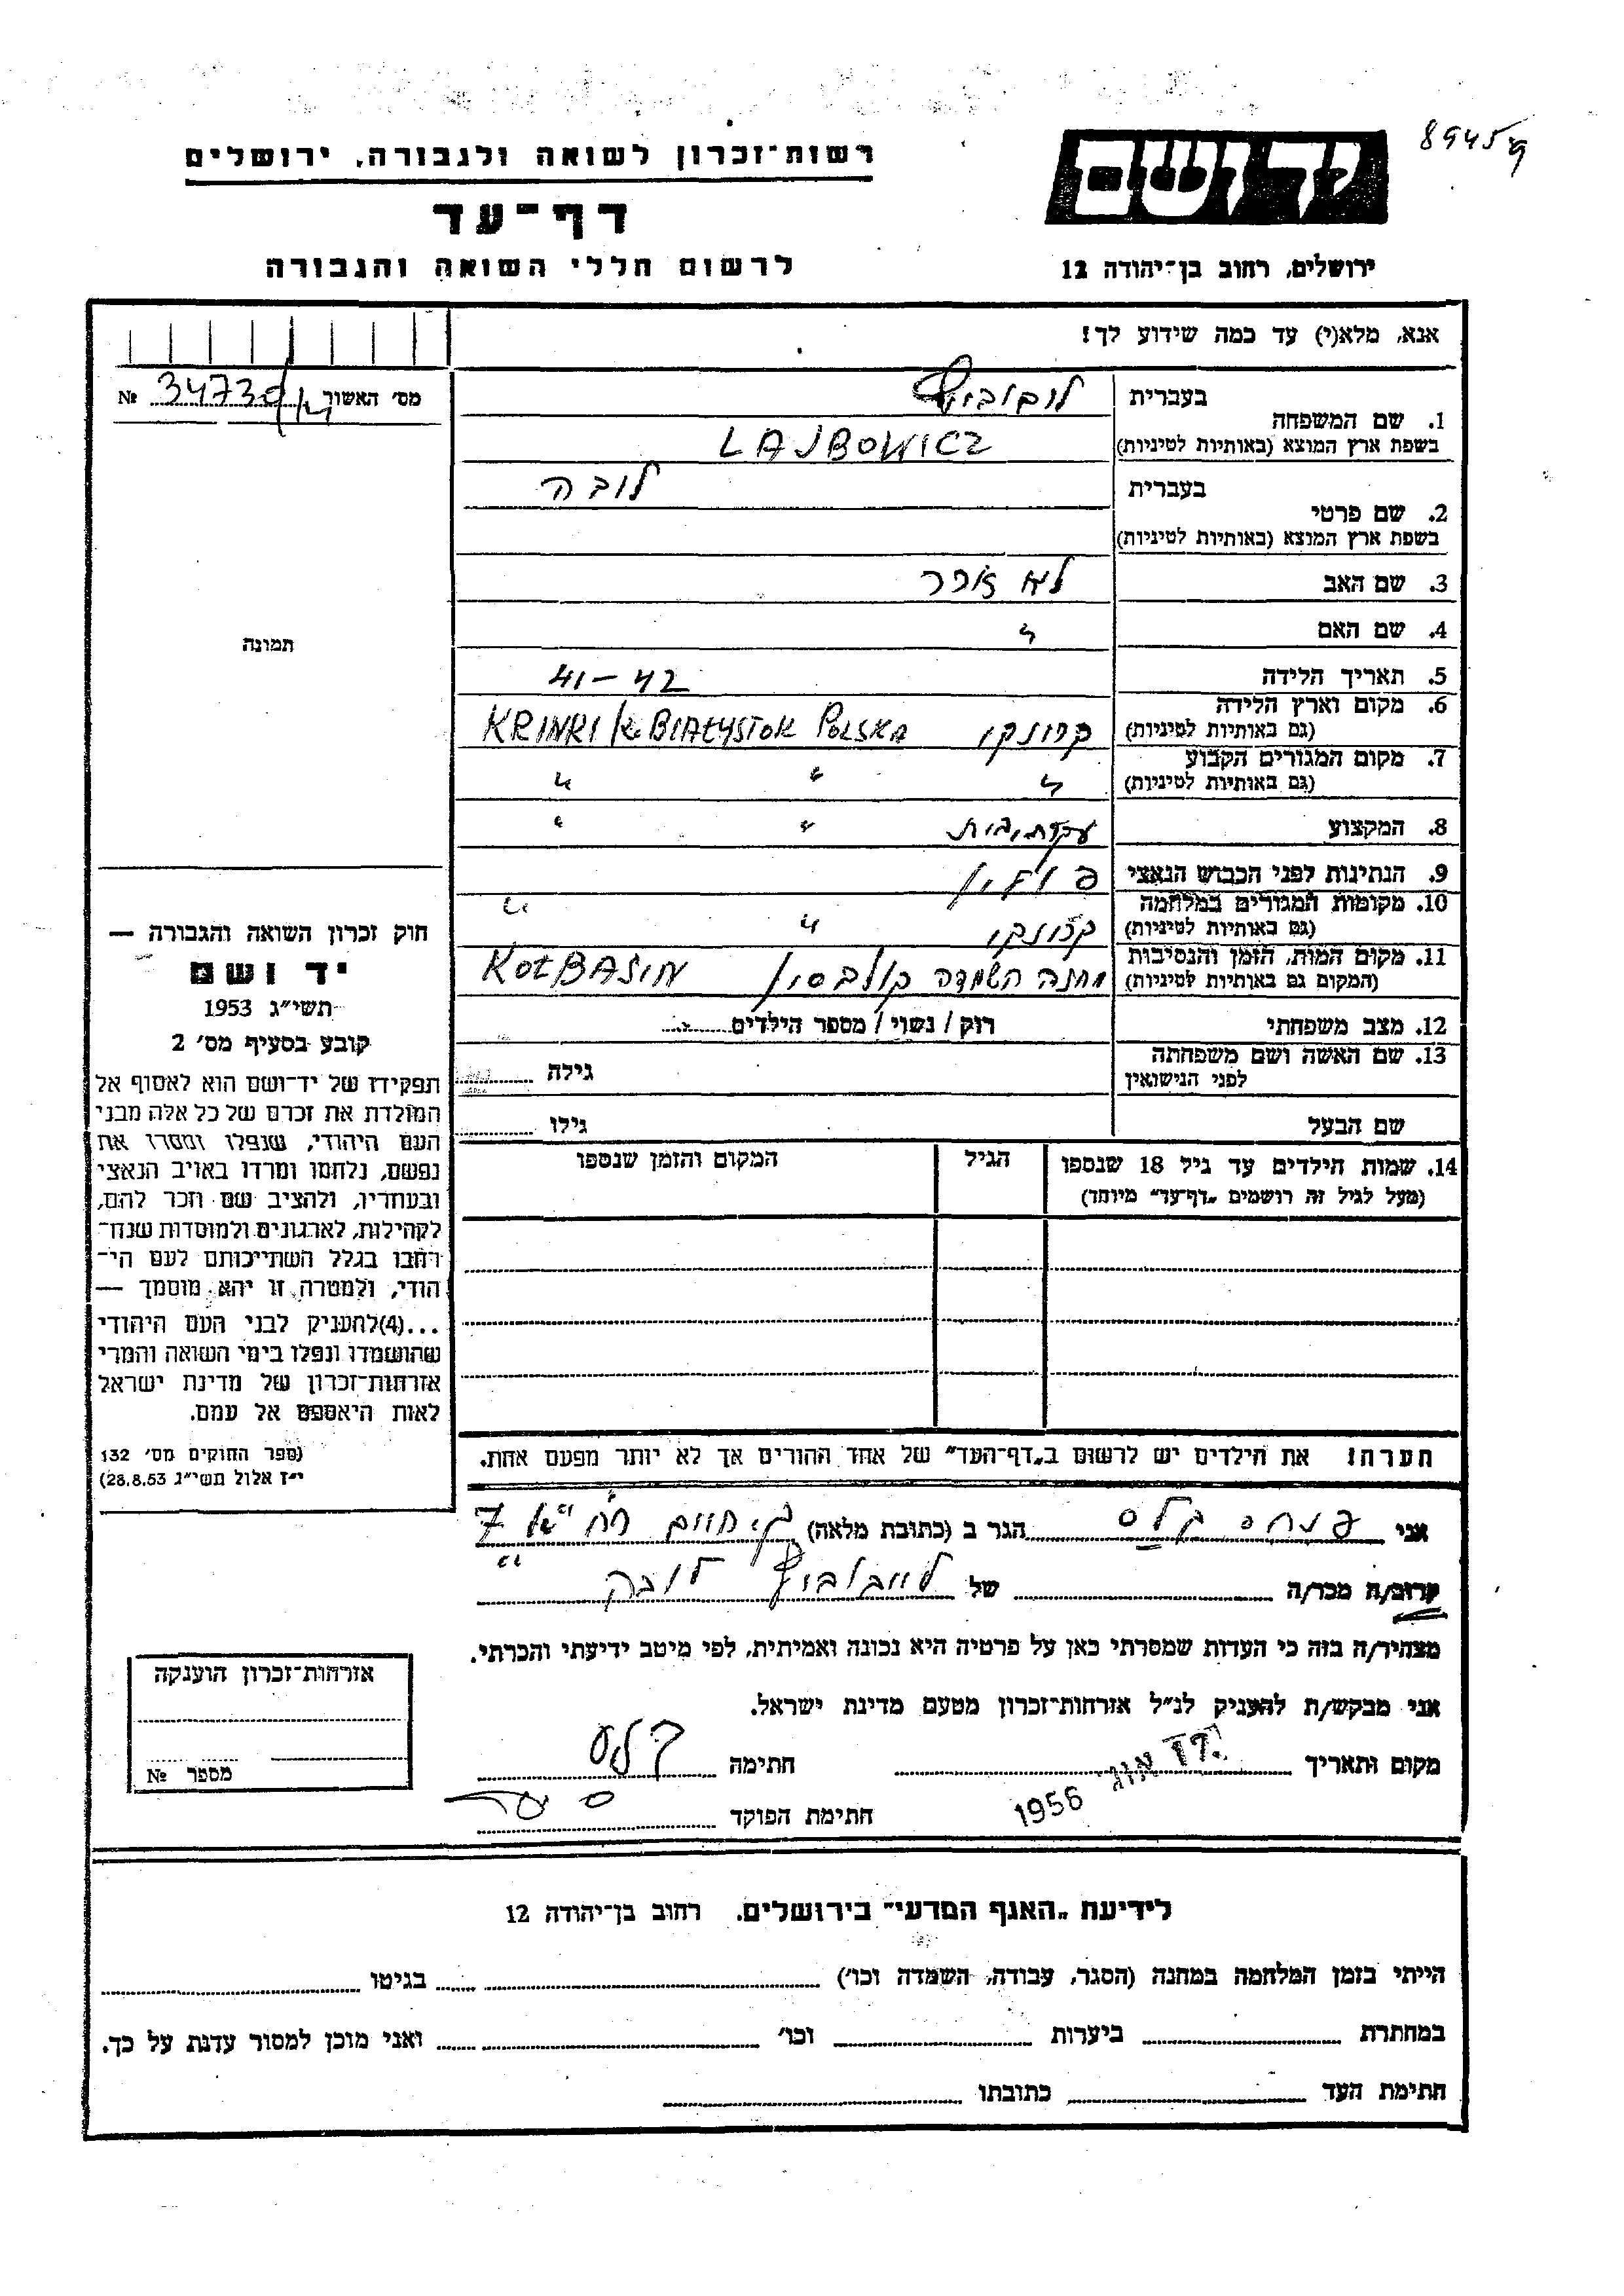 89459
רשות־זכרון לשואה ולגבורה, ירושלים
יד ושם
דף־עד
לרשום חללי השואה והגבורה
ירושלים, רחוב בן־יהודה 12
אנא, מלא(י) עד כמה שידוע לך!
מס' האשור № 34730
1. שם המשפחה
בעברית
LAJBOWICZ
בשפת ארץ המוצא (באותיות לטיניות)
2. שם פרטי
בעברית לובה
בשפת ארץ המוצא (באותיות לטיניות)
3. שם האב לא זוכר
4. שם האם "
5. תאריך הלידה 41–42
6. מקום וארץ הלידה
(גם באותיות לטיניות) קרינקי KRINKI k. BIAŁYSTOK POLSKA
7. מקום המגורים הקבוע
(גם באותיות לטיניות) " " "
8. המקצוע עקרת בית " "
9. הנתינות לפני הכבוש הנאצי פולין
10. מקומות המגורים במלחמה
(גם באותיות לטיניות) קרינקי " "
11. מקום המות, הזמן והנסיבות
(המקום גם באותיות לטיניות) מחנה השמדה קולבסין KOŁBASIN
12. מצב משפחתי רוק / נשוי / מספר הילדים
13. שם האשה ושם משפחתה
לפני הנישואין גילה
שם הבעל גילו
14. שמות הילדים עד גיל 18 שנספו הגיל המקום והזמן שנספו
(מעל לגיל זה רושמים „דף־עד" מיוחד)
הערה! את הילדים יש לרשום ב„דף־העד" של אחד ההורים אך לא יותר מפעם אחת.
תמונה
חוק זכרון השואה והגבורה —
יד ושם
תשי"ג 1953
קובע בסעיף מס' 2
תפקידו של יד־ושם הוא לאסוף אל
המולדת את זכרם של כל אלה מבני
העם היהודי, שנפלו ומסרו את
נפשם, נלחמו ומרדו באויב הנאצי
ובעוזריו, ולהציב שם וזכר להם,
לקהילות, לארגונים ולמוסדות שנח־
רבו בגלל השתייכותם לעם הי־
הודי, ולמטרה זו יהא מוסמך —
...(4)להעניק לבני העם היהודי
שהושמדו ונפלו בימי השואה והמרי
אזרחות־זכרון של מדינת ישראל
לאות היאספם אל עמם.
(ספר החוקים מס' 132
י"ז אלול תשי"ג 28.8.53)
אני פנחס קלס הגר ב (כתובת מלאה) 7
קרוב/ה מכר/ה של לייבוביץ לובה
מצהיר/ה בזה כי העדות שמסרתי כאן על פרטיה היא נכונה ואמיתית, לפי מיטב ידיעתי והכרתי.
אני מבקש/ת להעניק לנ"ל אזרחות־זכרון מטעם מדינת ישראל.
מקום ותאריך אוג 1956 חתימה
חתימת הפוקד
אזרחות־זכרון הוענקה
מספר №
לידיעת „האגף המדעי" בירושלים. רחוב בן־יהודה 12
הייתי בזמן המלחמה במחנה (הסגר, עבודה, השמדה וכו') בגיטו
במחתרת ביערות וכו' ואני מוכן למסור עדות על כך.
חתימת העד כתובתו